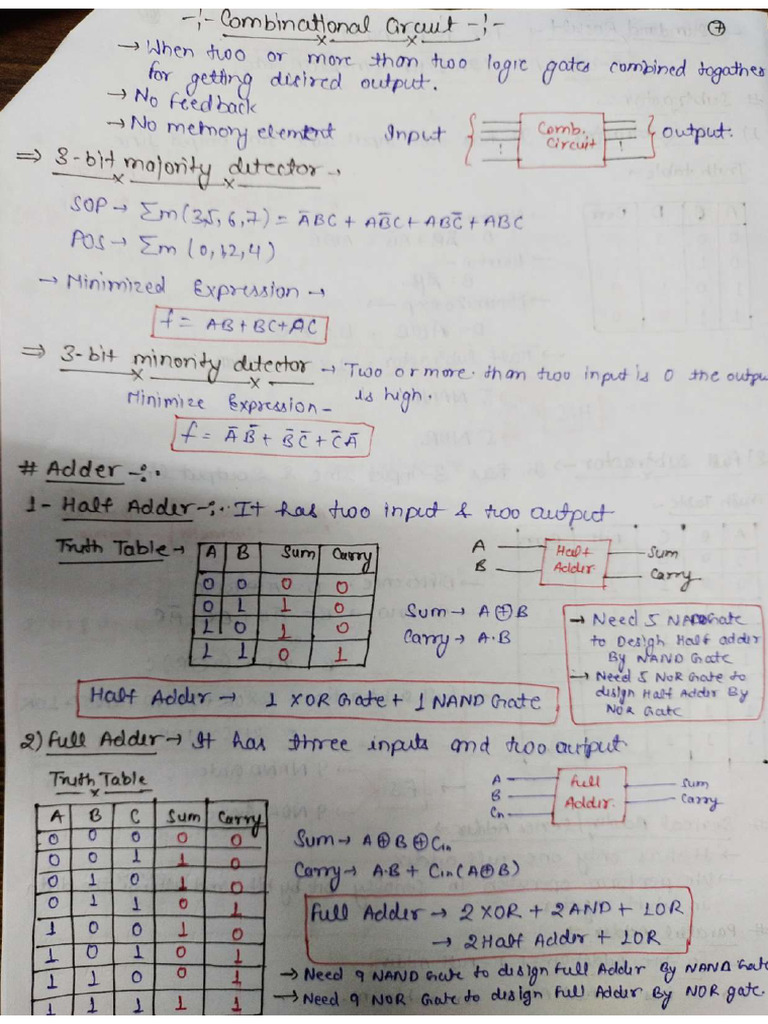 -:- Combinational Circuit -:- 7
→ When two or more than two logic gates combined togather
for getting disired output.
→ No feedback
→ No memory element Input Comb. Circuit output.
⇒ 3-bit majority detector →
SOP → Σm(3,5,6,7) = A̅BC + AB̅C + ABC̅ + ABC
POS → Σm (0,1,2,4)
→ Minimized Expression →
f = AB+BC+AC
⇒ 3-bit minority detector → Two or more than two input is 0 the outpu
is high.
Minimize Expression -
f = A̅B̅ + B̅C̅ + C̅A̅
# Adder -:-
1- Half Adder -:- It has two input & two output
Truth Table → A B Sum Carry
0 0 0 0
0 1 1 0
1 0 1 0
1 1 0 1
A B Half Adder Sum Carry
Sum → A⊕B
Carry → A·B
→ Need 5 NAND Gate
to Design Half adder
By NAND Gate
→ Need 5 NOR Gate to
disign Half Adder By
NOR Gate
Half Adder → 1 XOR Gate + 1 NAND Gate
2) Full Adder → It has three inputs and two output
Truth Table
A B C Sum Carry
0 0 0 0 0
0 0 1 1 0
0 1 0 1 0
0 1 1 0 1
1 0 0 1 0
1 0 1 0 1
1 1 0 0 1
1 1 1 1 1
A B Cn Full Adder. Sum Carry
Sum → A⊕B⊕Cin
Carry → A·B + Cin(A⊕B)
Full Adder → 2 XOR + 2 AND + 1 OR
→ 2 Half Adder + 1 OR
→ Need 9 NAND Gate to design Full Adder By NAND Gate
→ Need 9 NOR Gate to design Full Adder By NOR gate.